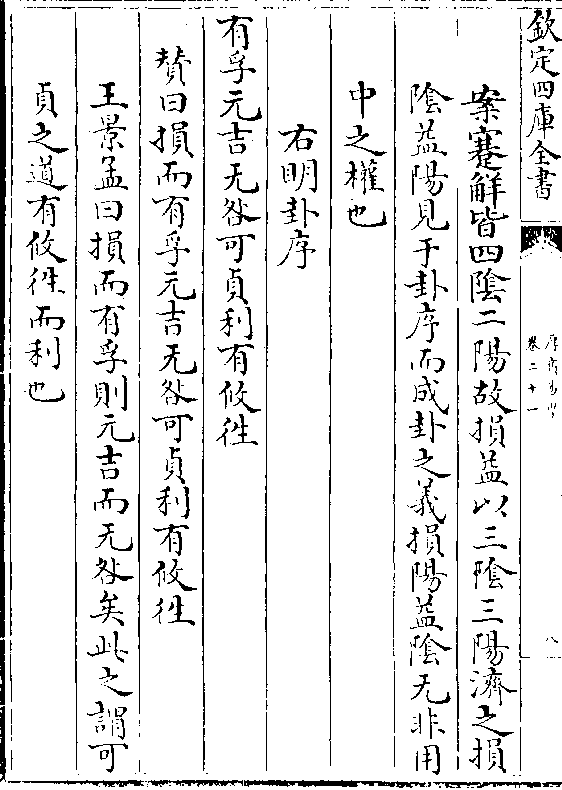 欽定四庫全書
卷二十一
案蹇解皆四陰二陽故損益以三陰三陽濟之損
陰益陽見于卦序而成卦之義損陽益陰无非用
中之權也
右明卦序
有孚元吉无咎可貞利有攸徃
賛曰損而有孚元吉无咎可貞利有攸徃
王景孟曰損而有孚則元吉而无咎矣此之謂可
貞之道有攸徃而利也